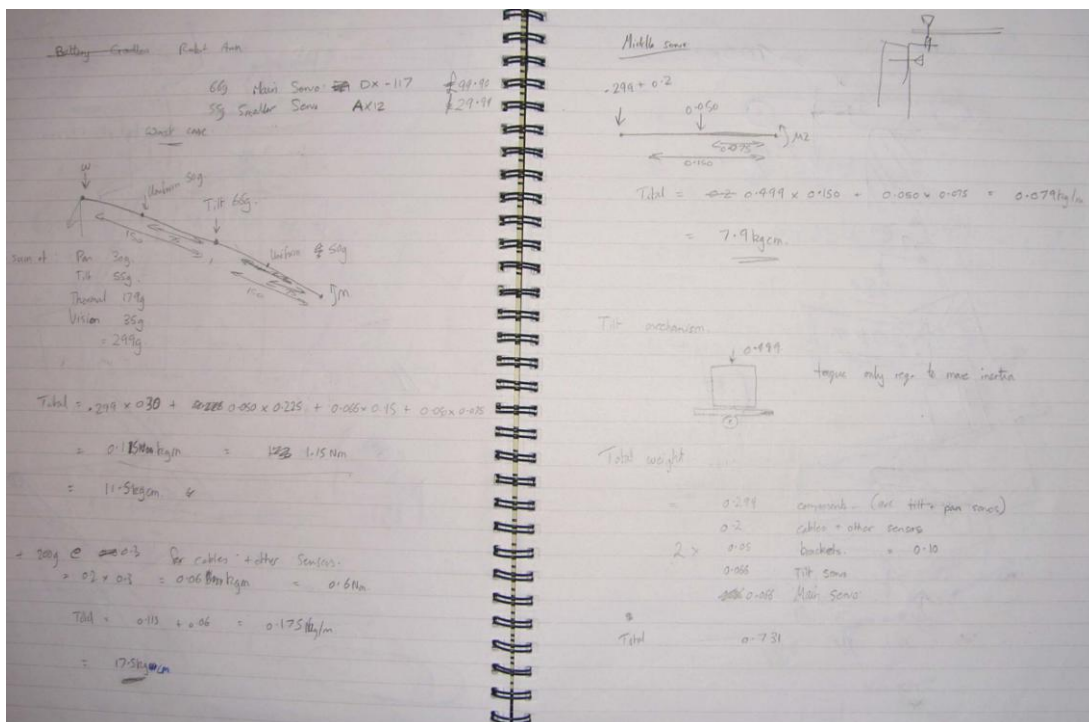 Robot Arm
66g Main Servo DX-117 £99.90
55g Smaller Servo AX12 £29.90
Worst case
W
Uniform 50g
Tilt 66g.
150
Uniform 50g
150
M
sum of Pan 30g
Tilt 55g
Thermal 179g
Vision 35g
= 299g
Total = .299 x 0.30 + 0.050 x 0.225 + 0.066 x 0.15 + 0.05 x 0.075
= 0.115 kgm = 1.15 Nm
= 11.5 kgcm
+ 200g @ 0.3 for cables + other sensors.
= 0.2 x 0.3 = 0.06 kgm = 0.6 Nm
Total = 0.115 + .06 = 0.175 kg/m
= 17.5kgcm
Middle servo
.299 + 0.2
0.050
M2
0.075
0.150
Total = 0.499 x 0.150 + 0.050 x 0.075 = 0.079kg/m
= 7.9 kgcm.
Tilt mechanism.
0.499
torque only req. to move inertia
Total weight
= 0.299 components. (inc tilt + pan servos)
0.2 cables + other sensors
2 x 0.05 brackets. = 0.10
0.066 Tilt servo
0.066 Main servo
Total 0.731